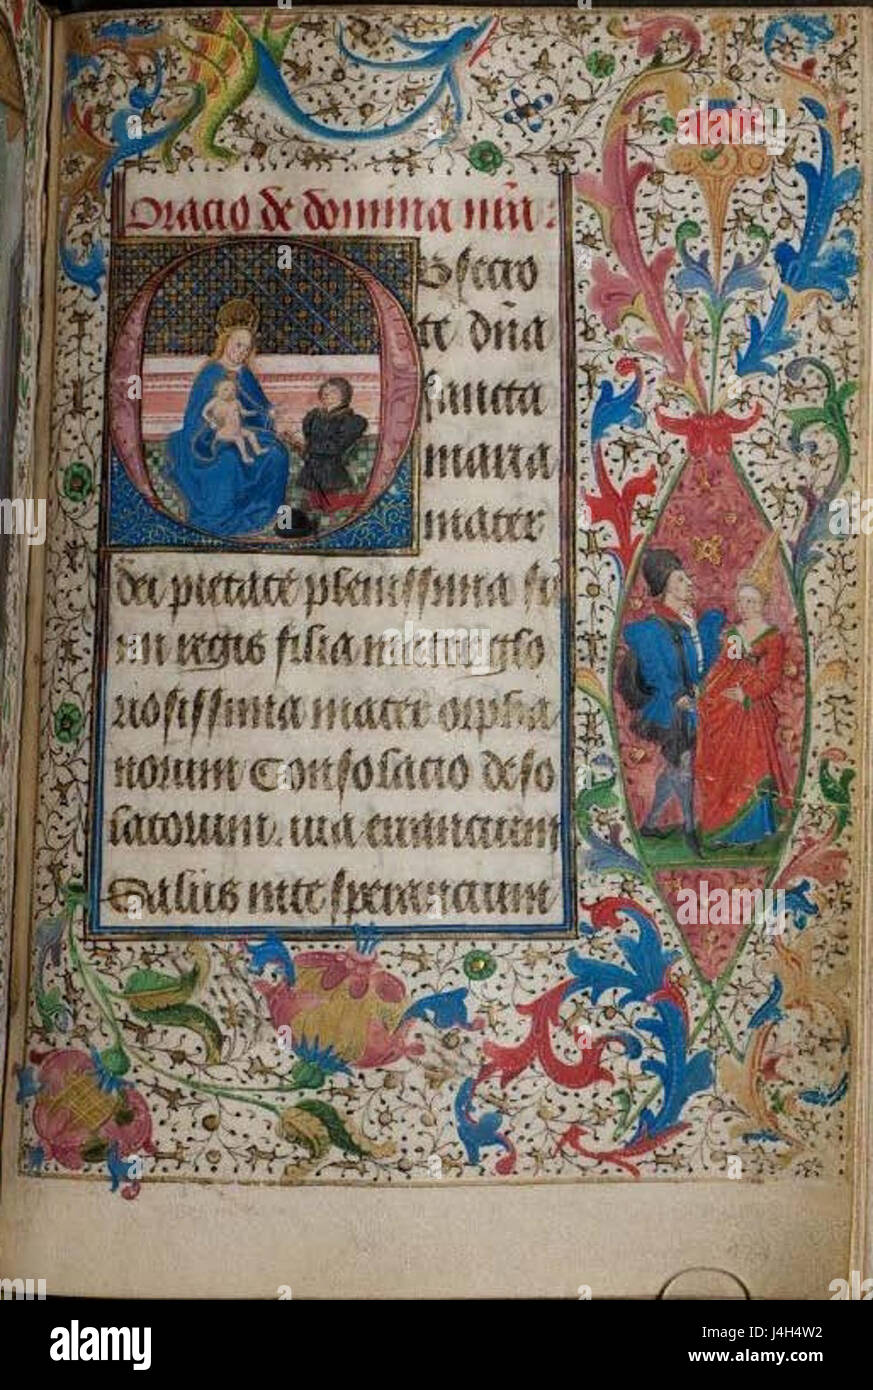 Oracio de domina nr̄a.
Obsecro
te dn̄a
sancta
maria
mater
dei pietate plenissima su
mi regis filia mater glo
riosissima mater orpha
norum Consolacio deso
latorum. via errancium
Salus in te sperancium
alamy
Image ID: J4H4W2
www.alamy.com